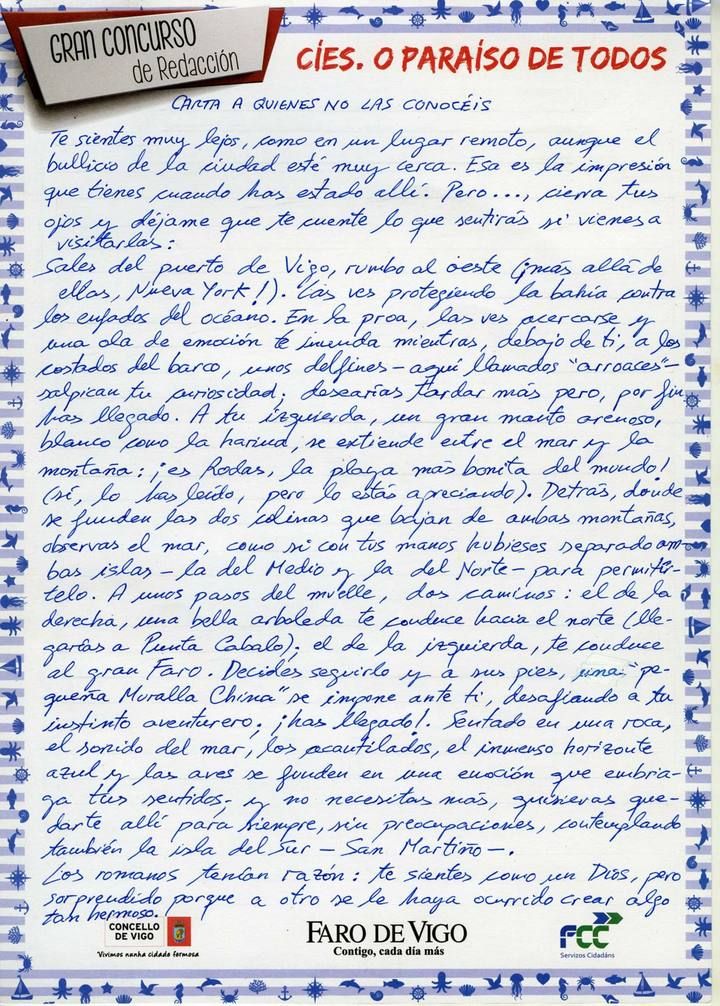 GRAN CONCURSO
de Redacción
CÍES. O PARAÍSO DE TODOS
CARTA A QUIENES NO LAS CONOCÉIS
Te sientes muy lejos, como en un lugar remoto, aunque el
bullicio de la ciudad esté muy cerca. Esa es la impresión
que tienes cuando has estado allí. Pero..., cierra tus
ojos y déjame que te cuente lo que sentirás si vienes a
visitarlas:
Sales del puerto de Vigo, rumbo al oeste (¡más allá de
ellas, Nueva York!). Las ves protegiendo la bahía contra
los enfados del océano. En la proa, las ves acercarse y
una ola de emoción te inunda mientras, debajo de ti, a los
costados del barco, unos delfines - aquí llamados "arroaces" -
salpican tu curiosidad; desearías tardar más pero, por fin,
has llegado. A tu izquierda, un gran manto arenoso,
blanco como la harina, se extiende entre el mar y la
montaña: ¡es Rodas, la playa más bonita del mundo!
(sí, lo has leído, pero lo estás apreciando). Detrás, donde
se funden las dos colinas que bajan de ambas montañas,
observas el mar, como si con tus manos hubieses separado am-
bas islas - la del Medio y la del Norte - para permitír-
telo. A unos pasos del muelle, dos caminos: el de la
derecha, una bella arboleda te conduce hacia el norte (lle-
garías a Punta Cabalo); el de la izquierda, te conduce
al gran Faro. Decides seguirlo y a sus pies, una "pe-
queña Muralla China" se impone ante ti, desafiando a tu
instinto aventurero; ¡has llegado!. Sentado en una roca,
el sonido del mar, los acantilados, el inmenso horizonte
azul y las aves se funden en una emoción que embria-
ga tus sentidos, y no necesitas más, quisieras que-
darte allí para siempre, sin preocupaciones, contemplando
también la isla del Sur - San Martiño -.
Los romanos tenían razón: te sientes como un Dios, pero
sorprendido porque a otro se le haya ocurrido crear algo
tan hermoso.
CONCELLO
DE VIGO
Vivimos nunha cidade fermosa
FARO DE VIGO
Contigo, cada día más
FCC
Servizos Cidadáns